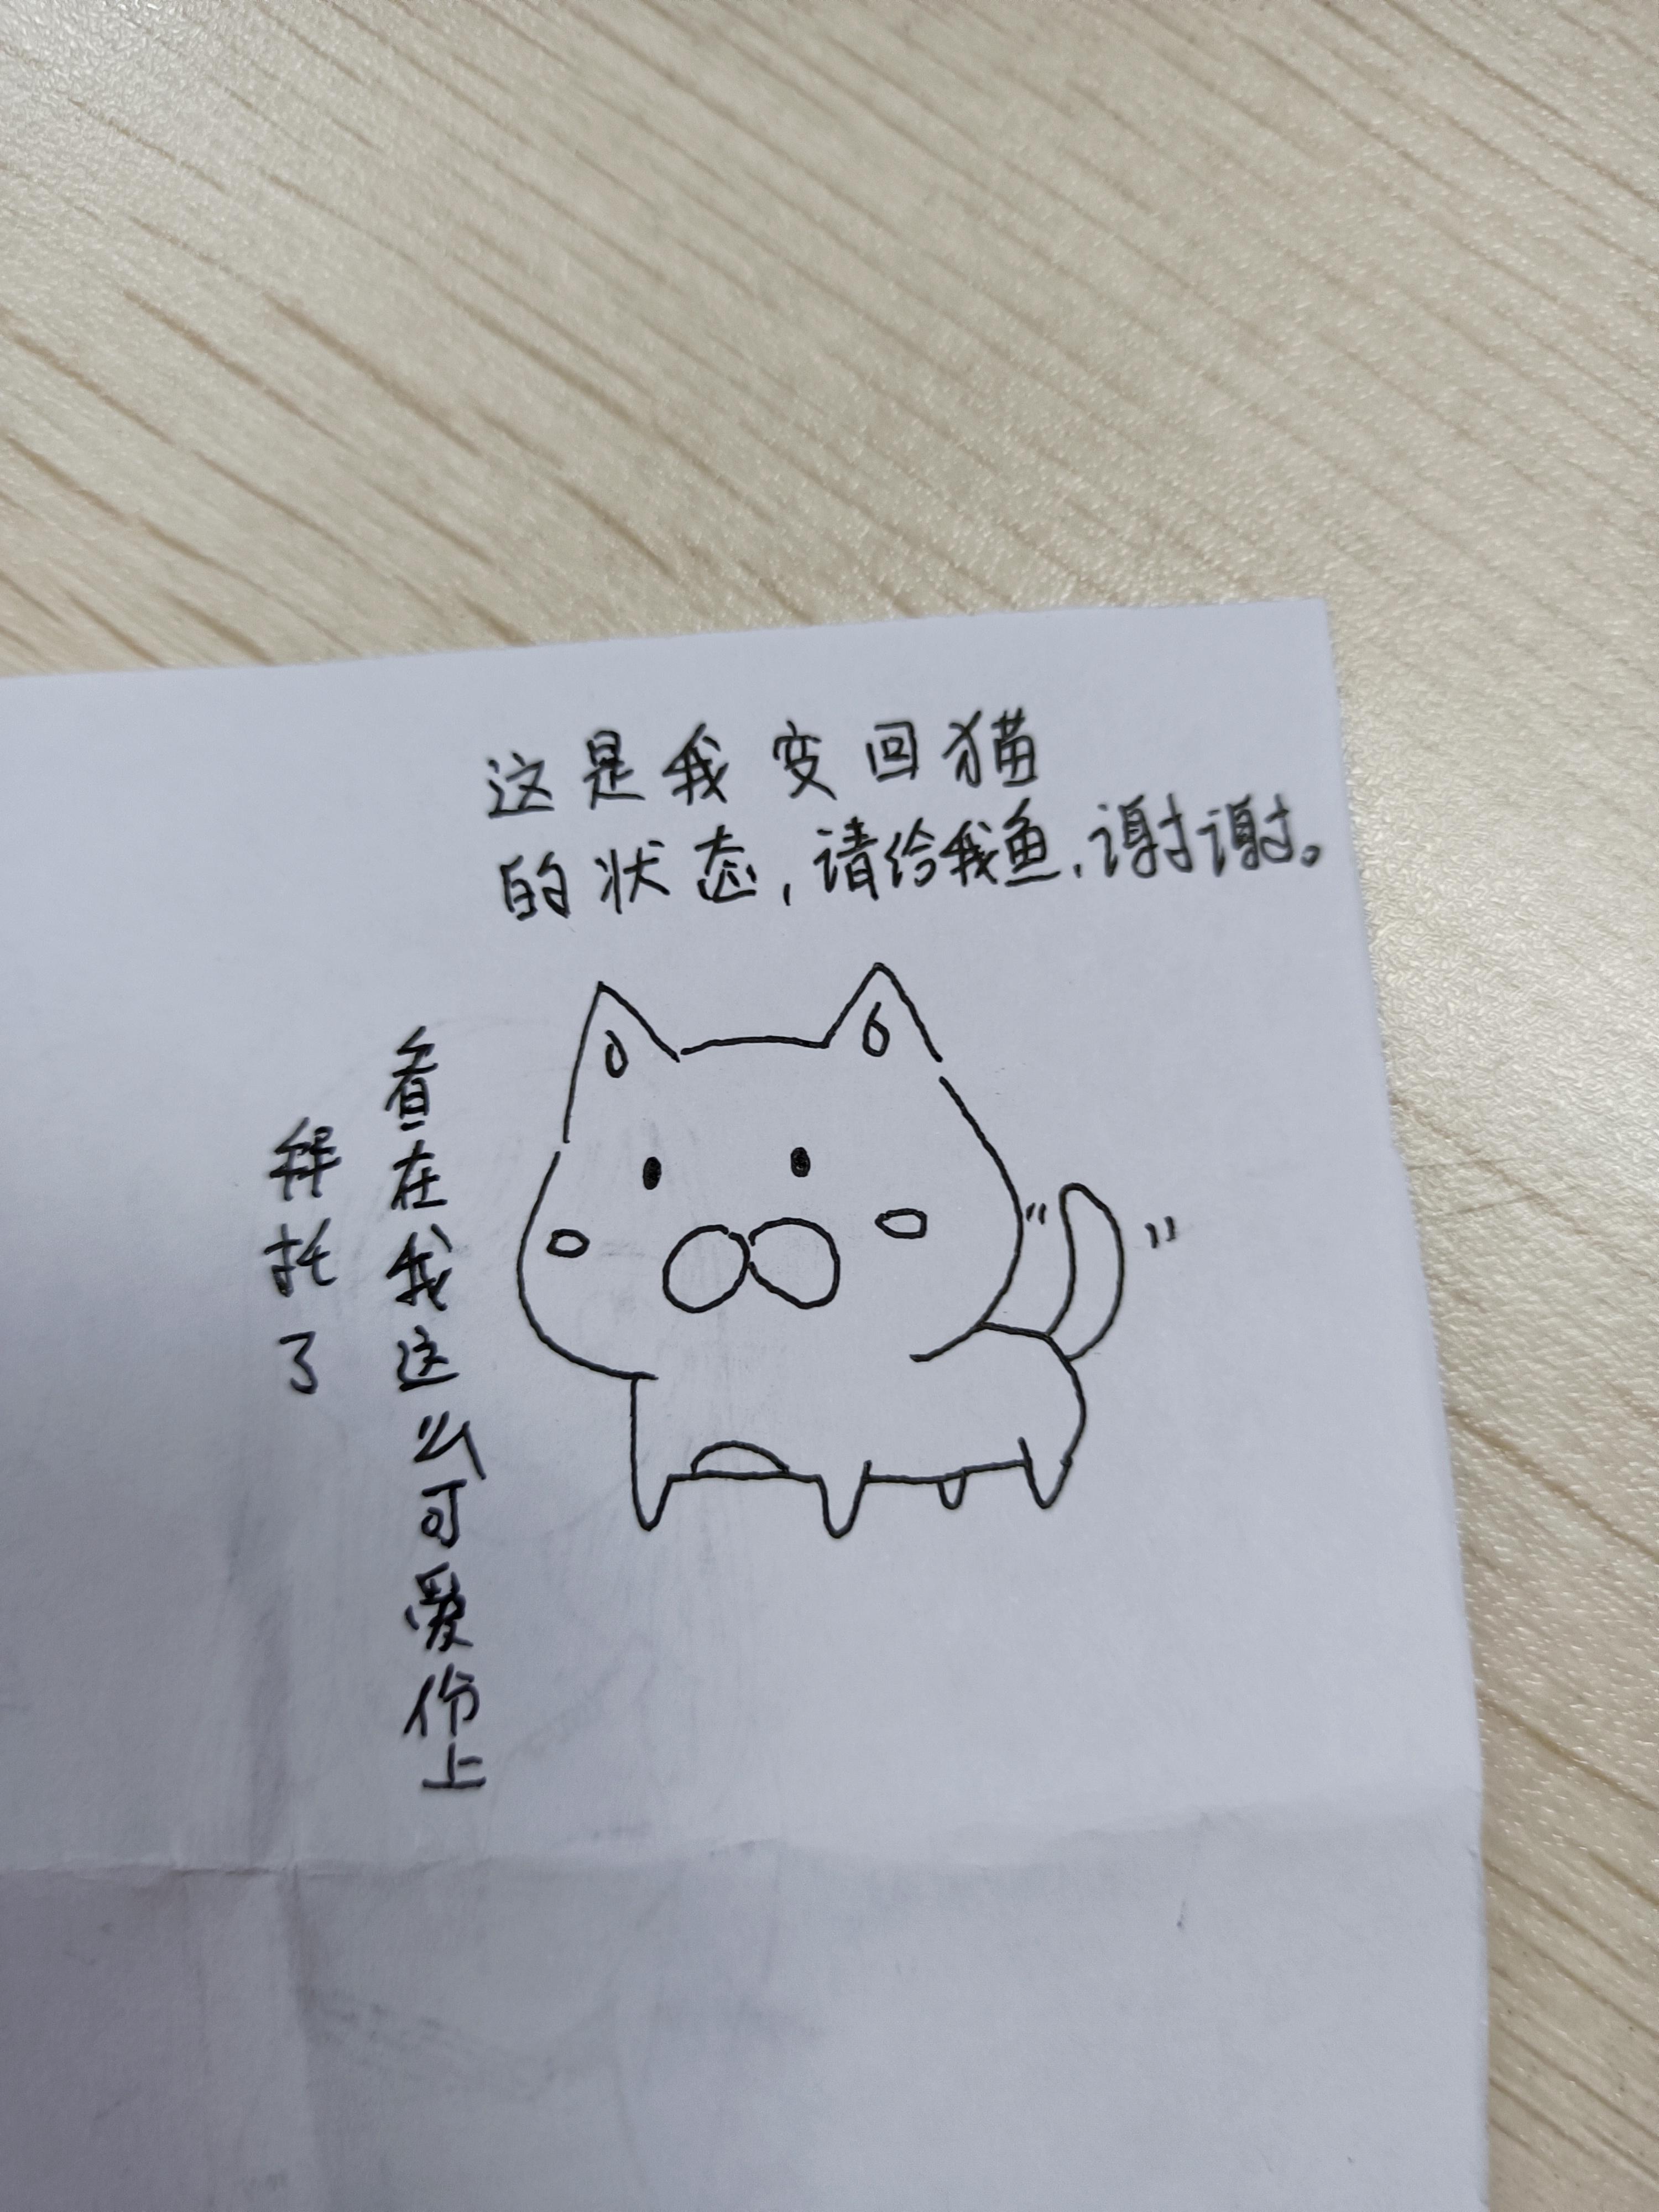 这是我变回猫
的状态,请给我鱼,谢谢。
看在我这么可爱份上
拜托了